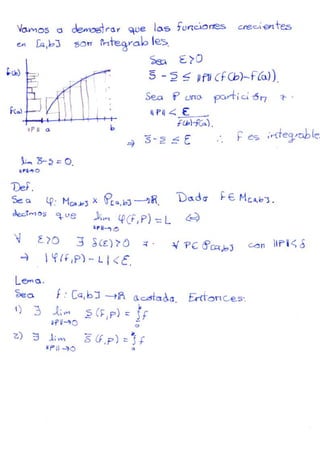 Vamos a demostrar que las funciones crecientes
en [a,b] son integrables.
Sea ε>0
f(b)
S̄ - S̲ ≤ ||P|| (f(b)-f(a)).
Sea P una partición
f(a)
||P|| < ε / f(b)-f(a).
||P|| a b
⇒ S̄-S̲ ≤ ε ∴ f es integrable
lim S̄-S̲ = 0.
||P||→0
Def.
Sea φ: M[a,b] × P[a,b] → ℝ. Dada f∈M[a,b].
decimos que lim φ(f,P) = L ⇔
||P||→0
∀ ε>0 ∃ δ(ε)>0 ∀ P∈P[a,b] con ||P||<δ
⇒ |φ(f,P)-L|<ε.
Lema.
Sea f: [a,b] →ℝ acotada. Entonces:
1) ∃ lim S̲(f,P) = ∫f
||P||→0 a
2) ∃ lim S̄(f,P) = ∫f
||P||→0 a